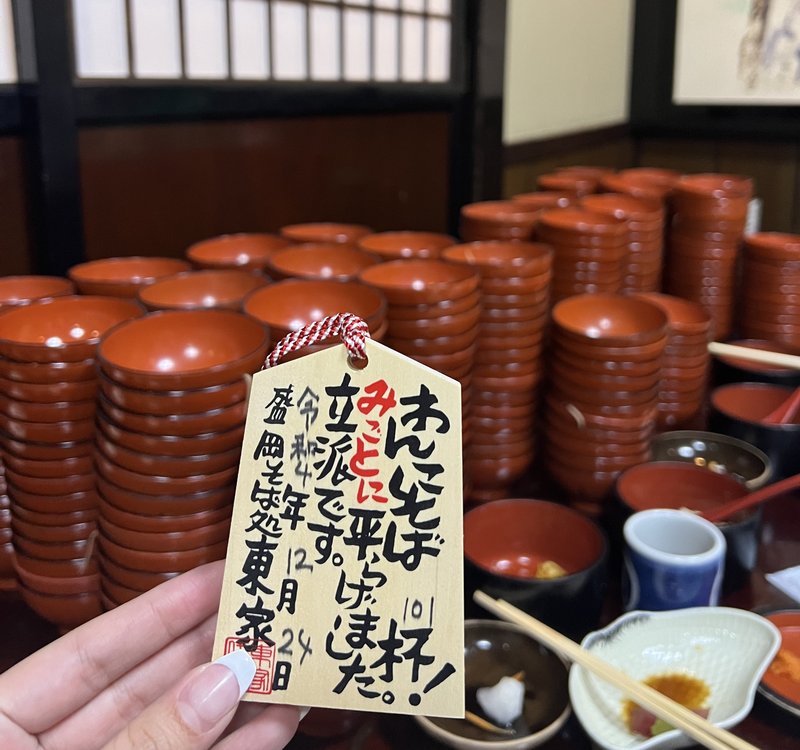 わんこそば101杯！
みごとに平らげました。
立派です。
令和4年12月24日
盛岡そば処東家